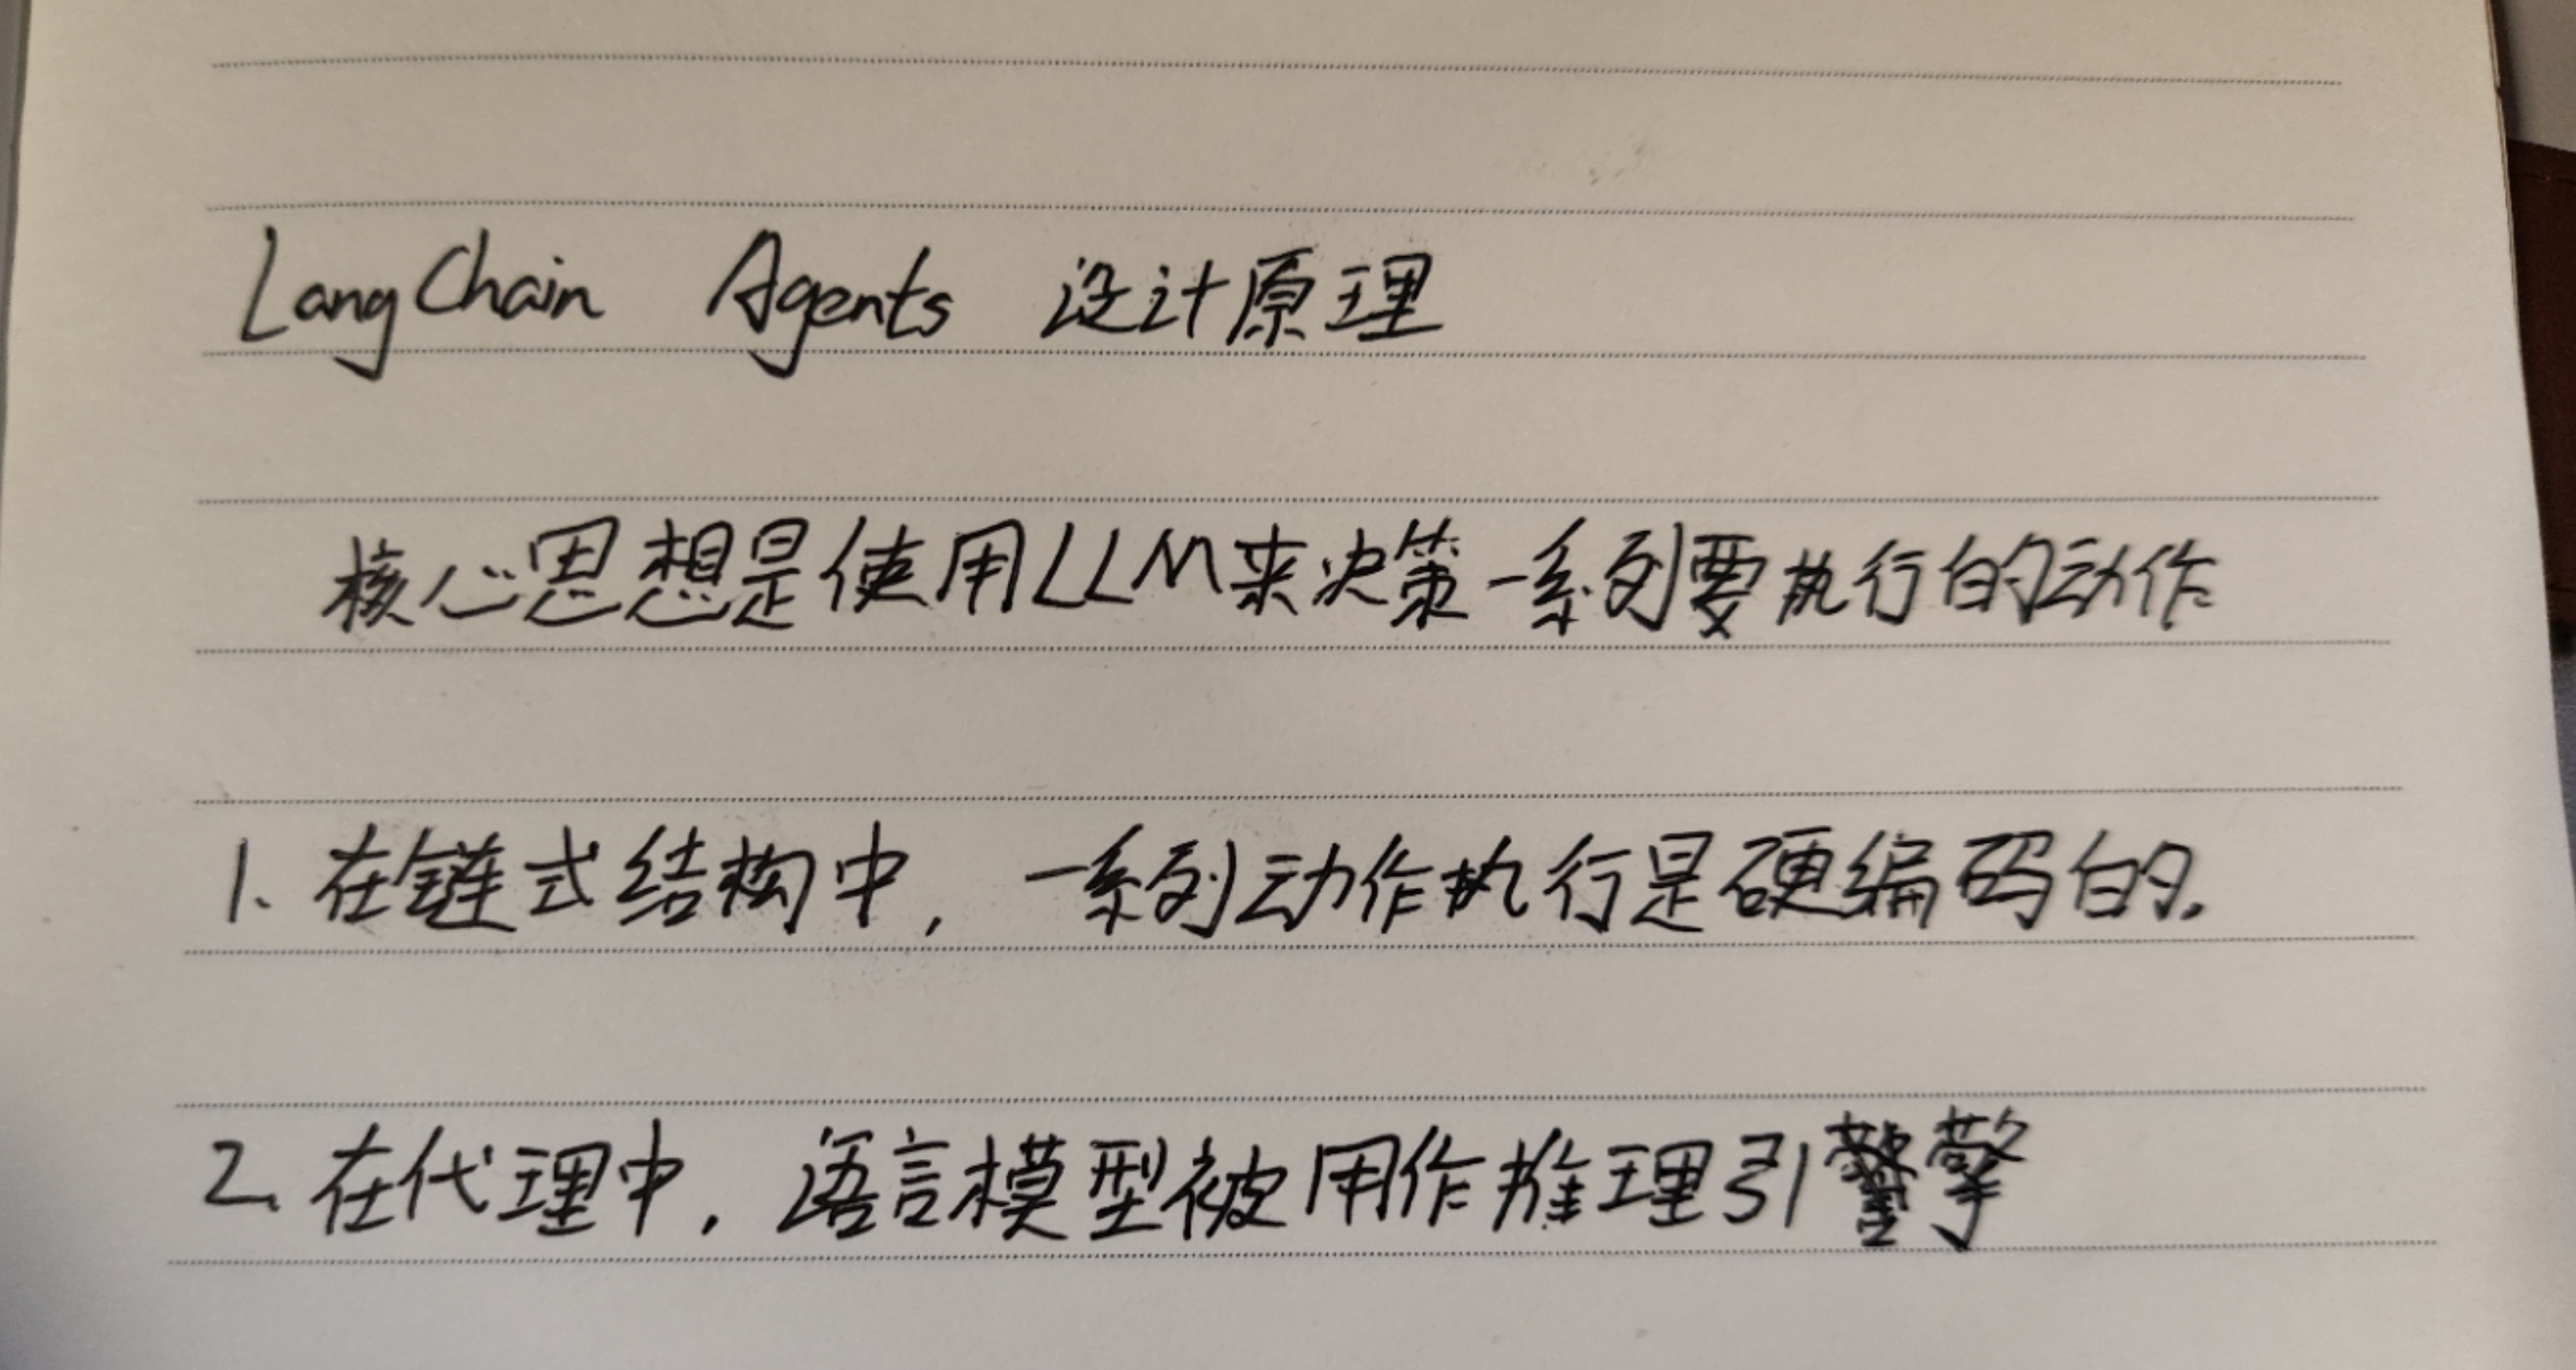 LangChain Agents 设计原理
核心思想是使用LLM来决策一系列要执行的动作
1. 在链式结构中, 一系列动作执行是硬编码的.
2. 在代理中, 语言模型被用作推理引擎